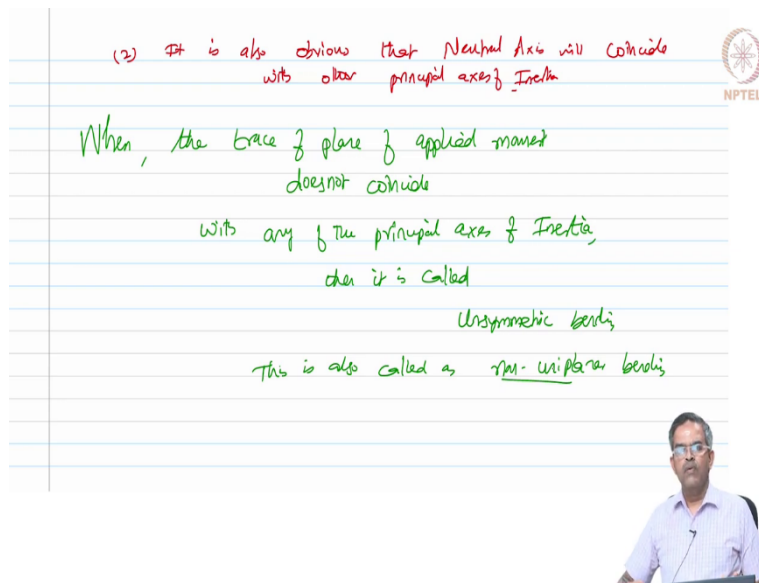 (2) It is also obvious that Neutral Axis will coincide
with other principal axes of Inertia
NPTEL
When, the trace of plane of applied moment
doesnot coincide
with any of the principal axes of Inertia,
then it is called
Unsymmetric bending
This is also called as non-uniplanar bending